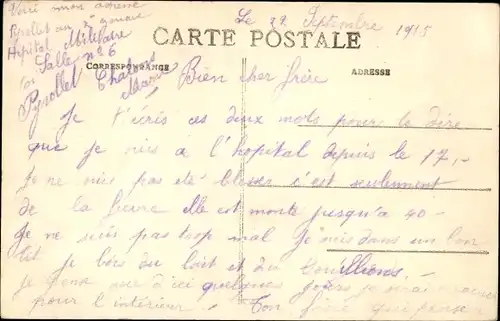 Voici mon adresse
au 2e zouave
Hopital Militaire
Salle no 6
Chalons
Marne
Le 22 Septembre 1915
CARTE POSTALE
CORRESPONDANCE
ADRESSE
Bien cher frère
Je t'écris ces deux mots pour te dire
que je suis à l'hopital depuis le 17,-
Je ne suis pas eté blesser c'est seulement
de la fievre elle est monté jusqu'a 40 -
Je ne suis pas trop mal Je suis dans un bon
lit je bois du lait et du bouilliens. -
Je pense que d'ici quelques jours je serai
pour l'intérieur - Ton frère qui pense